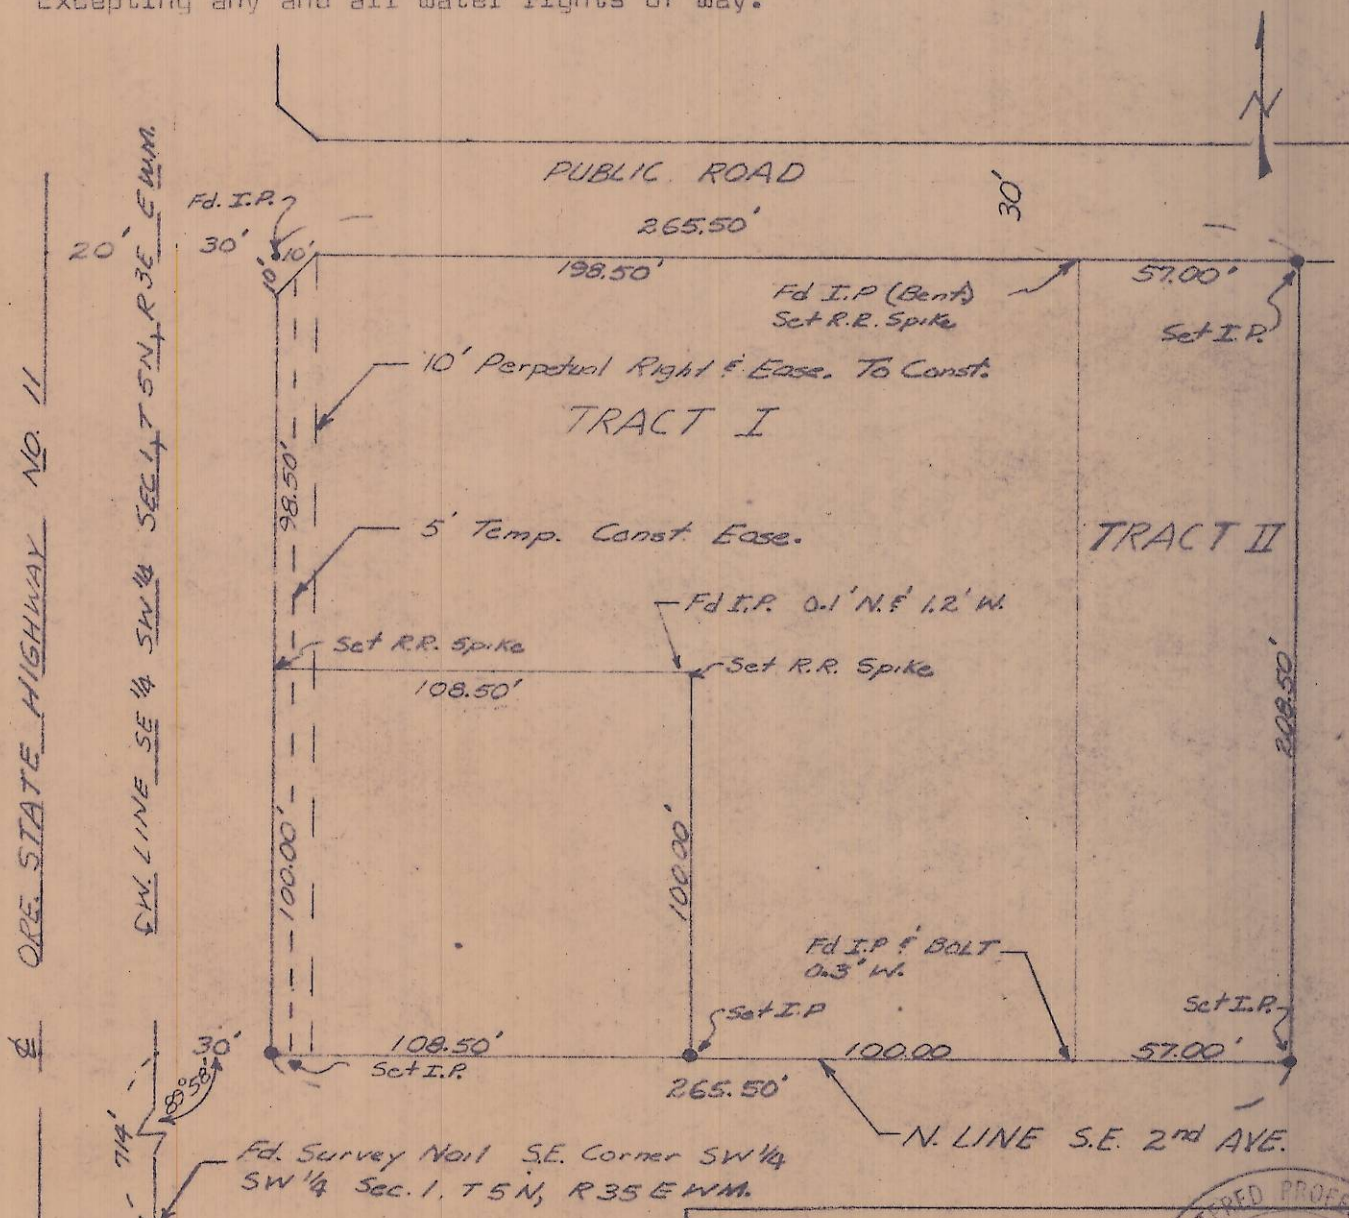 Excepting any and all water rights of way.
N
PUBLIC ROAD
30'
265.50'
Fd. I.P.
20'
30'
10'
10'
198.50'
57.00'
Fd I.P (Bent)
Set R.R. Spike
Set I.P.
10' Perpetual Right & Ease. To Const.
TRACT I
98.50'
5' Temp. Const. Ease.
TRACT II
Fd I.P. 0.1' N. & 1.2' W.
Set R.R. Spike
Set R.R. Spike
108.50'
208.50'
100.00'
100.00'
Fd I.P & BOLT
0.3' W.
Set I.P
Set I.P.
30'
108.50'
Set I.P.
100.00
57.00'
265.50'
N. LINE S.E. 2nd AVE.
714'
Fd. Survey Nail S.E. Corner SW 1/4
SW 1/4 Sec. 1. T 5 N, R 35 E WM.
℄ ORE. STATE HIGHWAY NO. 11
W. LINE SE 1/4 SW 1/4 SEC 1, T 5 N, R 3E EWM.